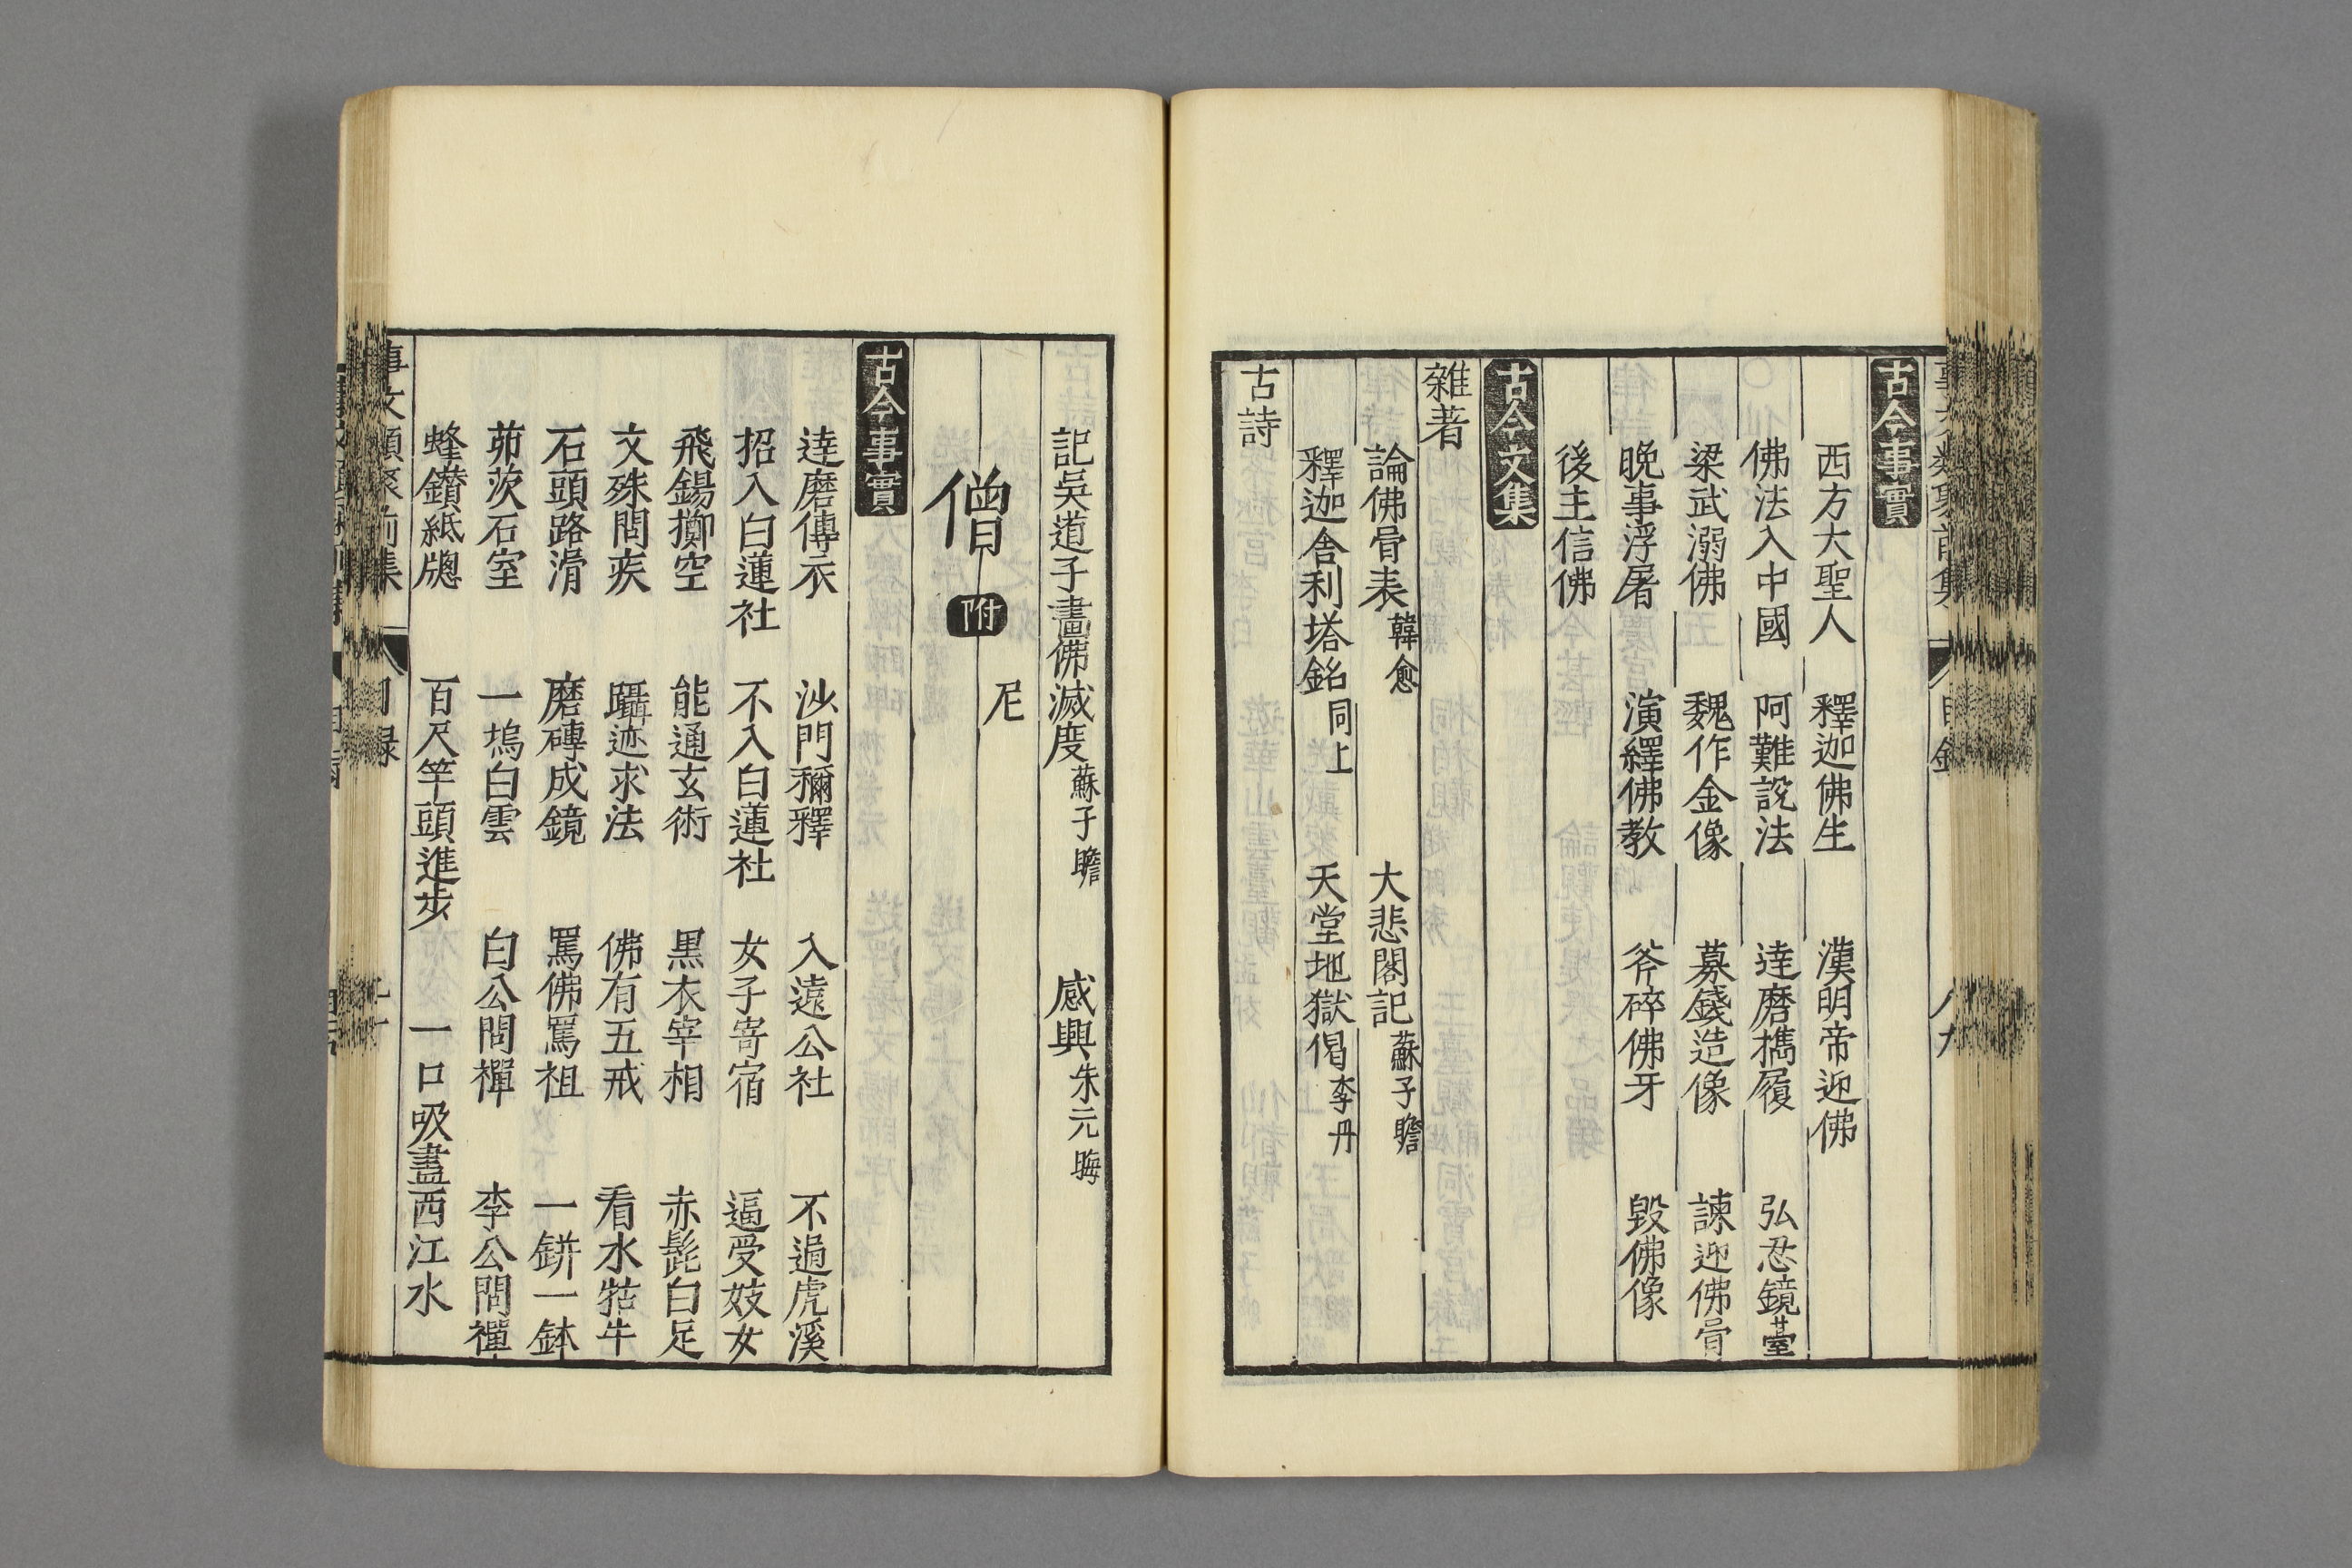 古今事實
西方大聖人 釋迦佛生 漢明帝迎佛
佛法入中國 阿難說法 達磨攜履 弘忍鏡臺
梁武溺佛 魏作金像 募錢造像 諫迎佛骨
晚事浮屠 演繹佛教 斧碎佛牙 毀佛像
後主信佛
古今文集
雜著
論佛骨表 韓愈 大悲閣記 蘇子瞻
釋迦舍利塔銘 同上 天堂地獄偈 李丹
古詩
記吳道子畫佛滅度 蘇子瞻 感興 朱元晦
尼
僧 附
古今事實
達磨傳衣 沙門稱釋 入遠公社 不過虎溪
招入白蓮社 不入白蓮社 女子寄宿 逼受妓女
飛錫擲空 能通玄術 黑衣宰相 赤髭白足
文殊問疾 躡迹求法 佛有五戒 看水牯牛
石頭路滑 磨磚成鏡 罵佛罵祖 一缾一鉢
茆茨石室 一塢白雲 白公問禪 李公問禪
蜂鑽紙牕 百尺竿頭進步 一口吸盡西江水
事文類聚前集 目録